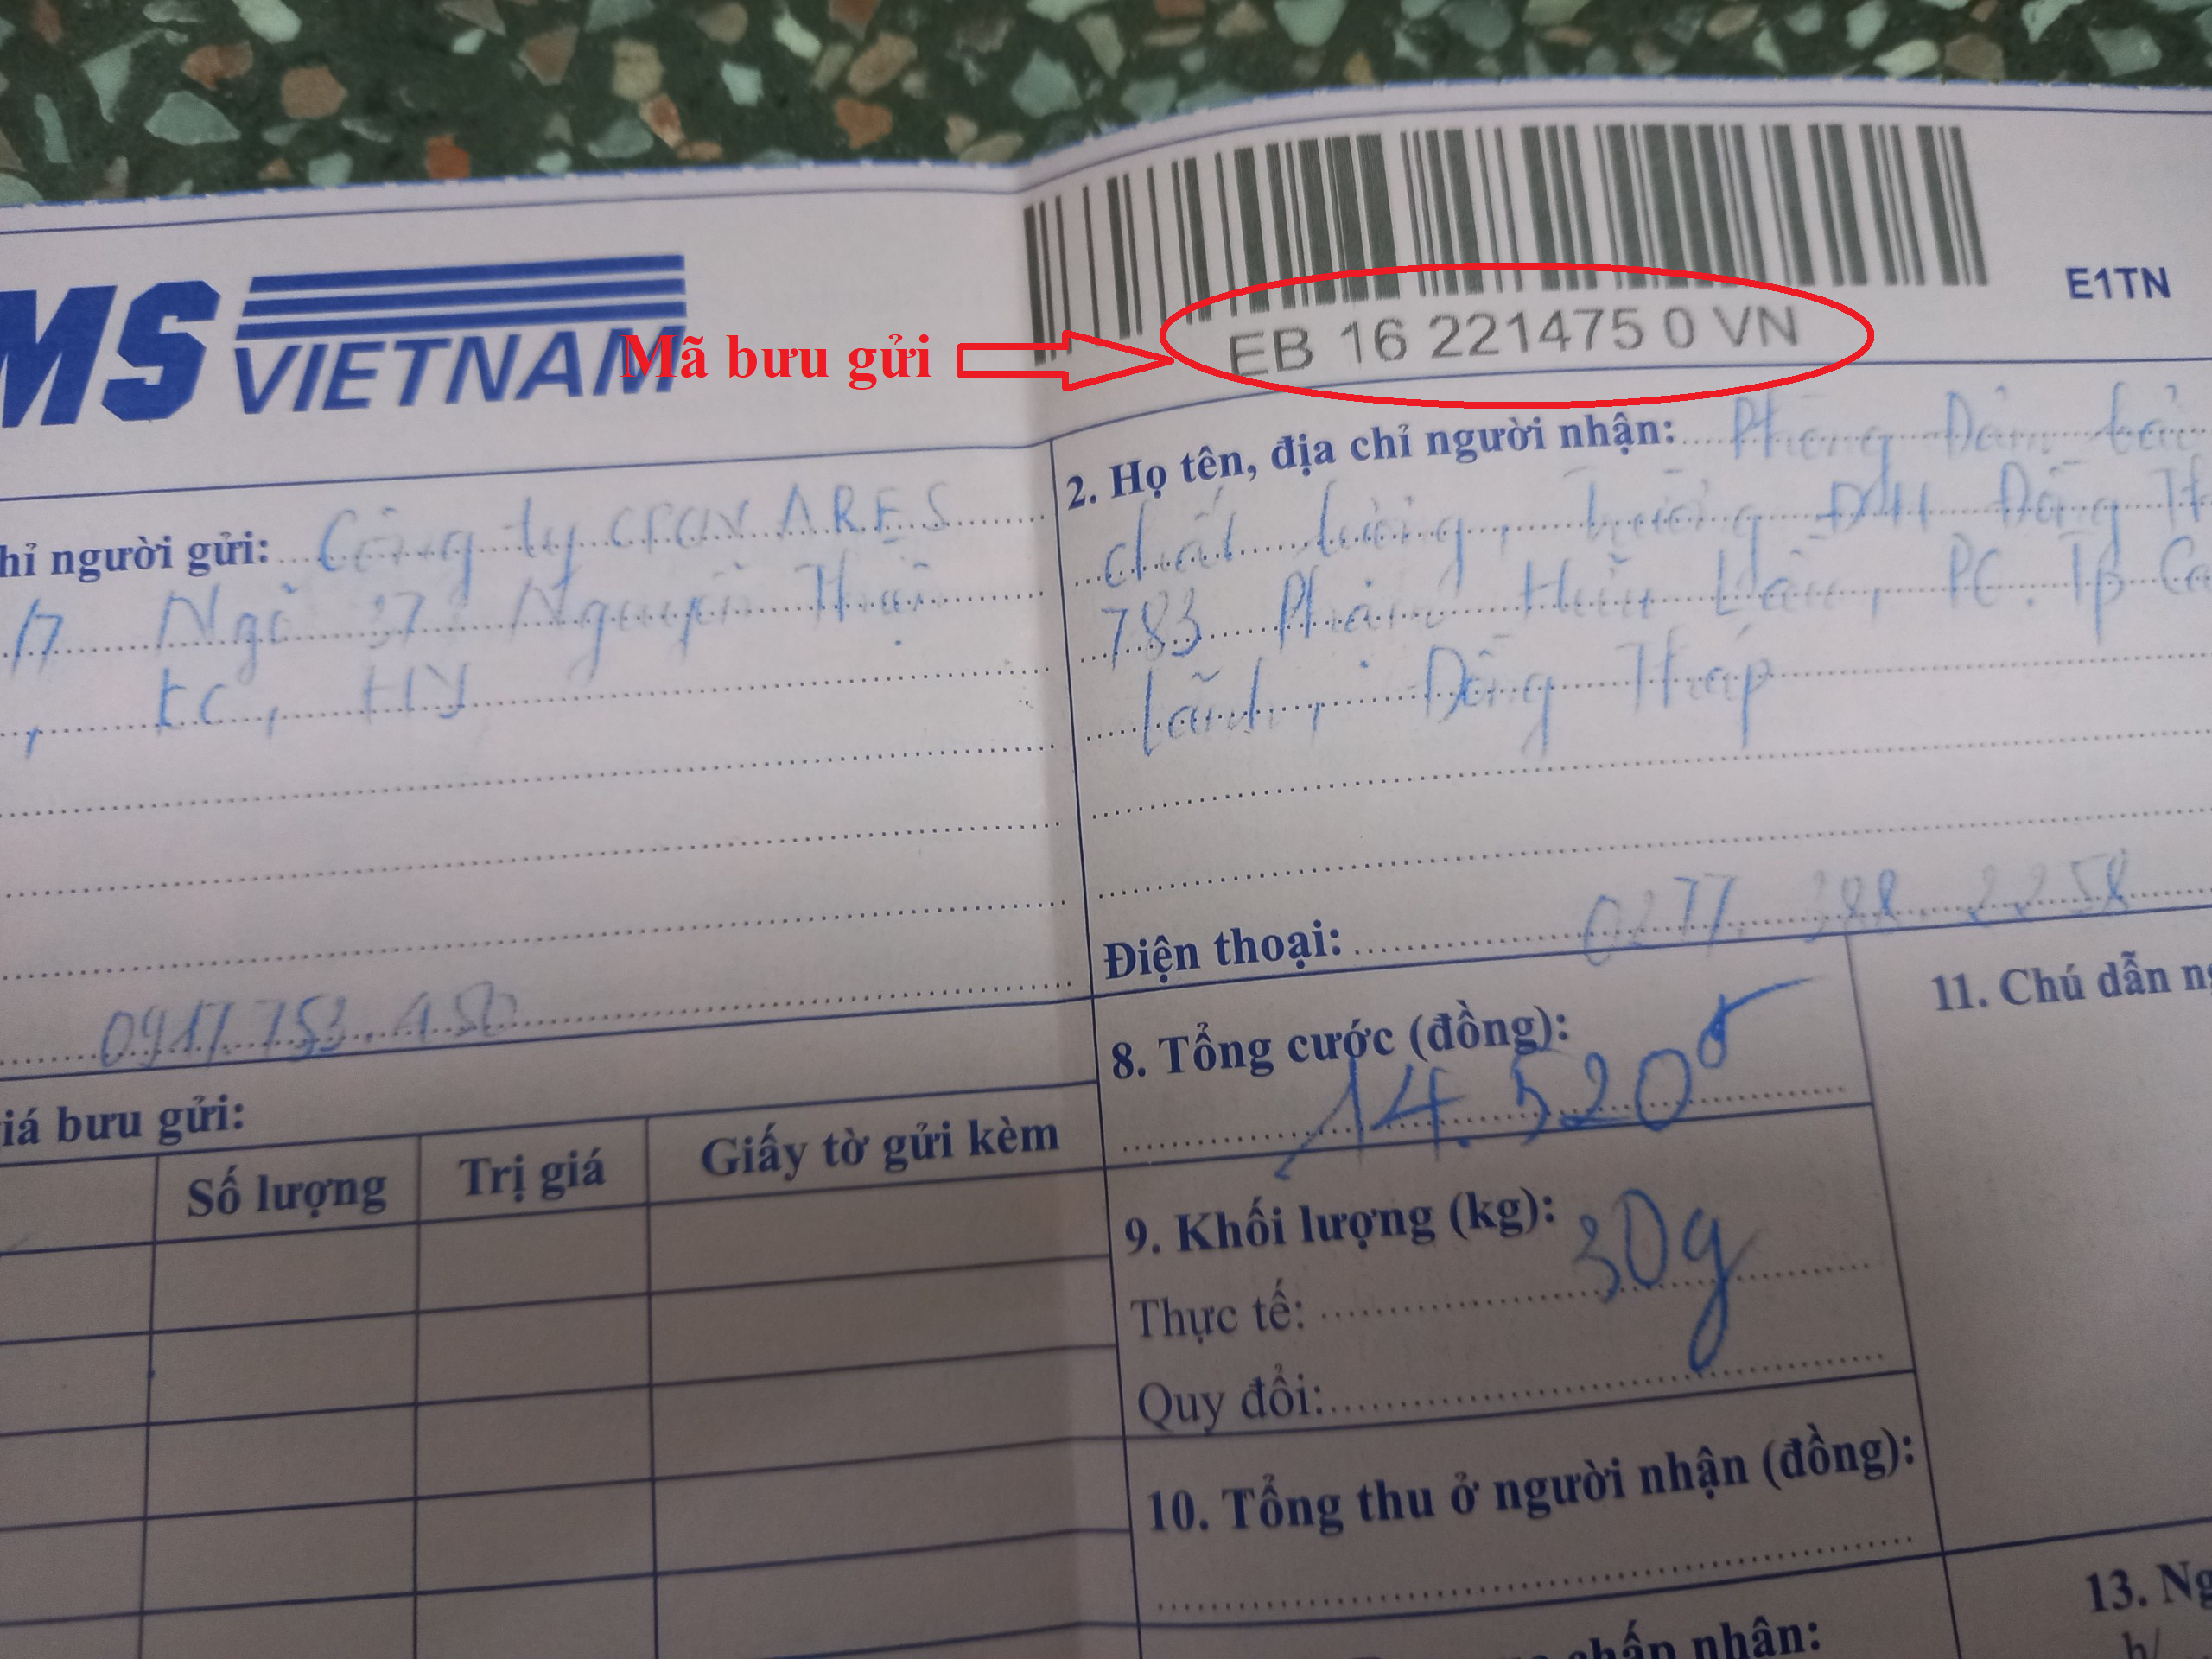 MS VIETNAM
EB 16 221475 0 VN
E1TN
Mã bưu gửi
hỉ người gửi: Công ty ARES
17 Ngõ 37 Nguyễn Thiện
, KC, HY
0917.753.450
2. Họ tên, địa chỉ người nhận: Phòng Đảm bả
chất lượng, trường ĐH Đồng Th
783 Phạm Hữu Lầu, P6, Tp Ca
Lãnh, Đồng Tháp
Điện thoại: 0277. 388. 2258
iá bưu gửi:
Số lượng
Trị giá
Giấy tờ gửi kèm
8. Tổng cước (đồng):
14.520đ
9. Khối lượng (kg):
Thực tế: 30g
Quy đổi:
10. Tổng thu ở người nhận (đồng):
11. Chú dẫn ng
chấp nhận:
13. Ng